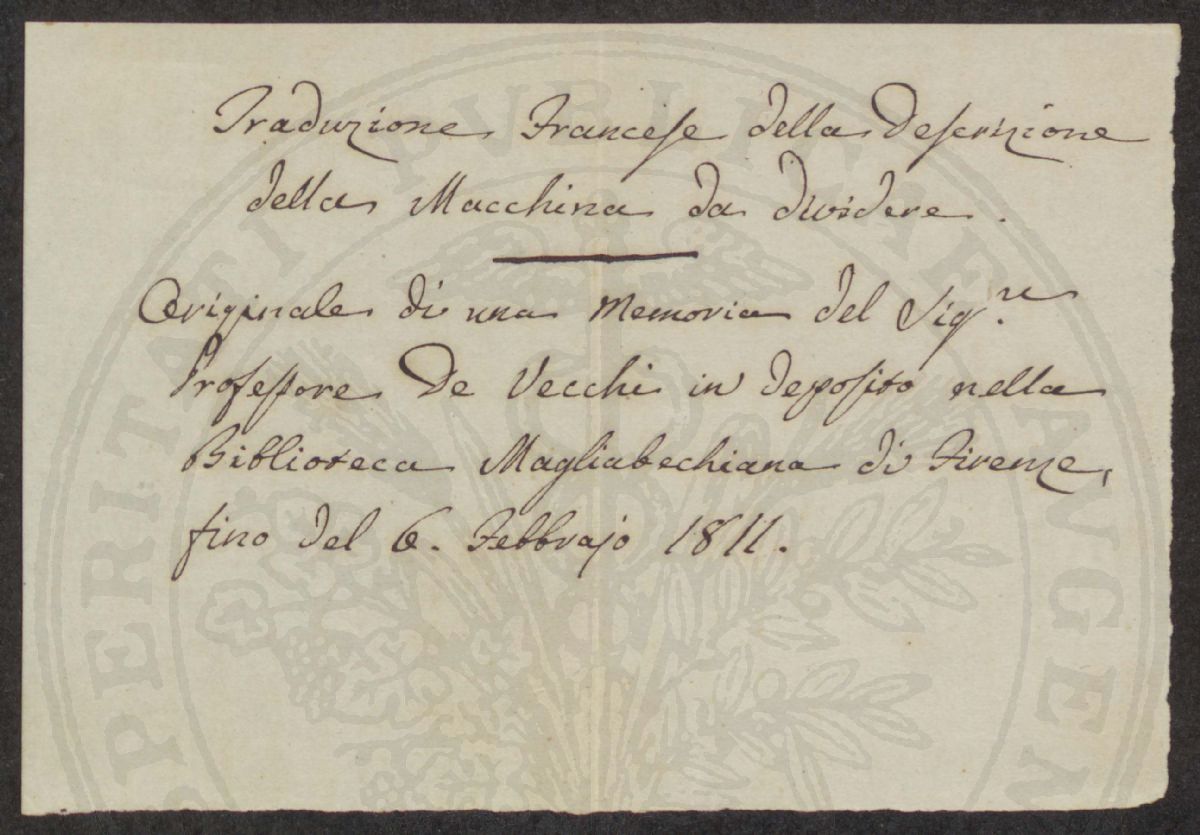 Traduzione Francese della Descrizione
della Macchina da dividere.
Originale di una Memoria del Sig.re
Professore De Vecchi in deposito nella
Biblioteca Magliabechiana di Firenze,
fino del 6. Febbrajo 1811.
PROSPERITATI PUBLICAE AUGENDAE